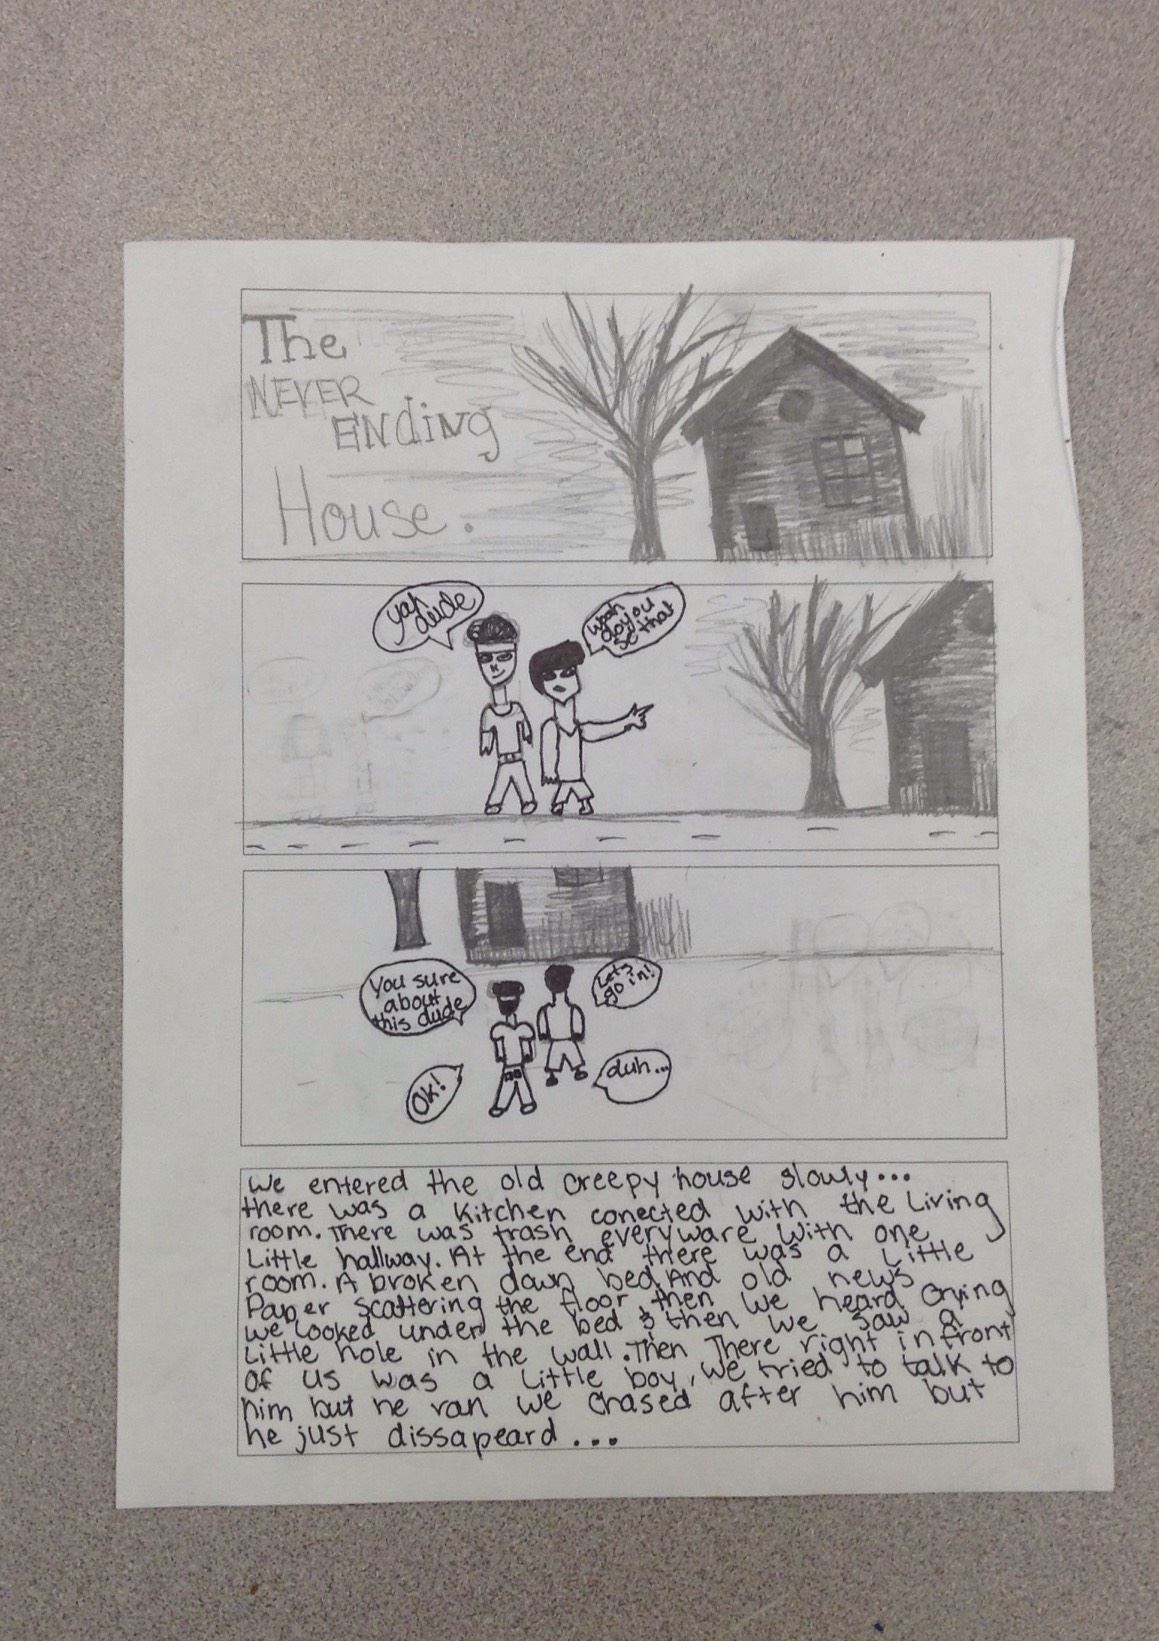 The
NEVER
ENding
House.
yah
dude
woah
doyou
se that
You sure
about
this dude
Lets
go in!
Ok!
duh...
We entered the old creepy house slowly...
there was a kitchen conected with the Living
room. There was trash everyware with one
Little hallway. At the end there was a Little
room. A broken down bed And old news
Paper scattering the floor, then we heard crying
we looked under the bed & then we saw a
Little hole in the wall. Then There right in front
Of us was a Little boy, we tried to talk to
him but he ran we chased after him but
he just dissapeard...